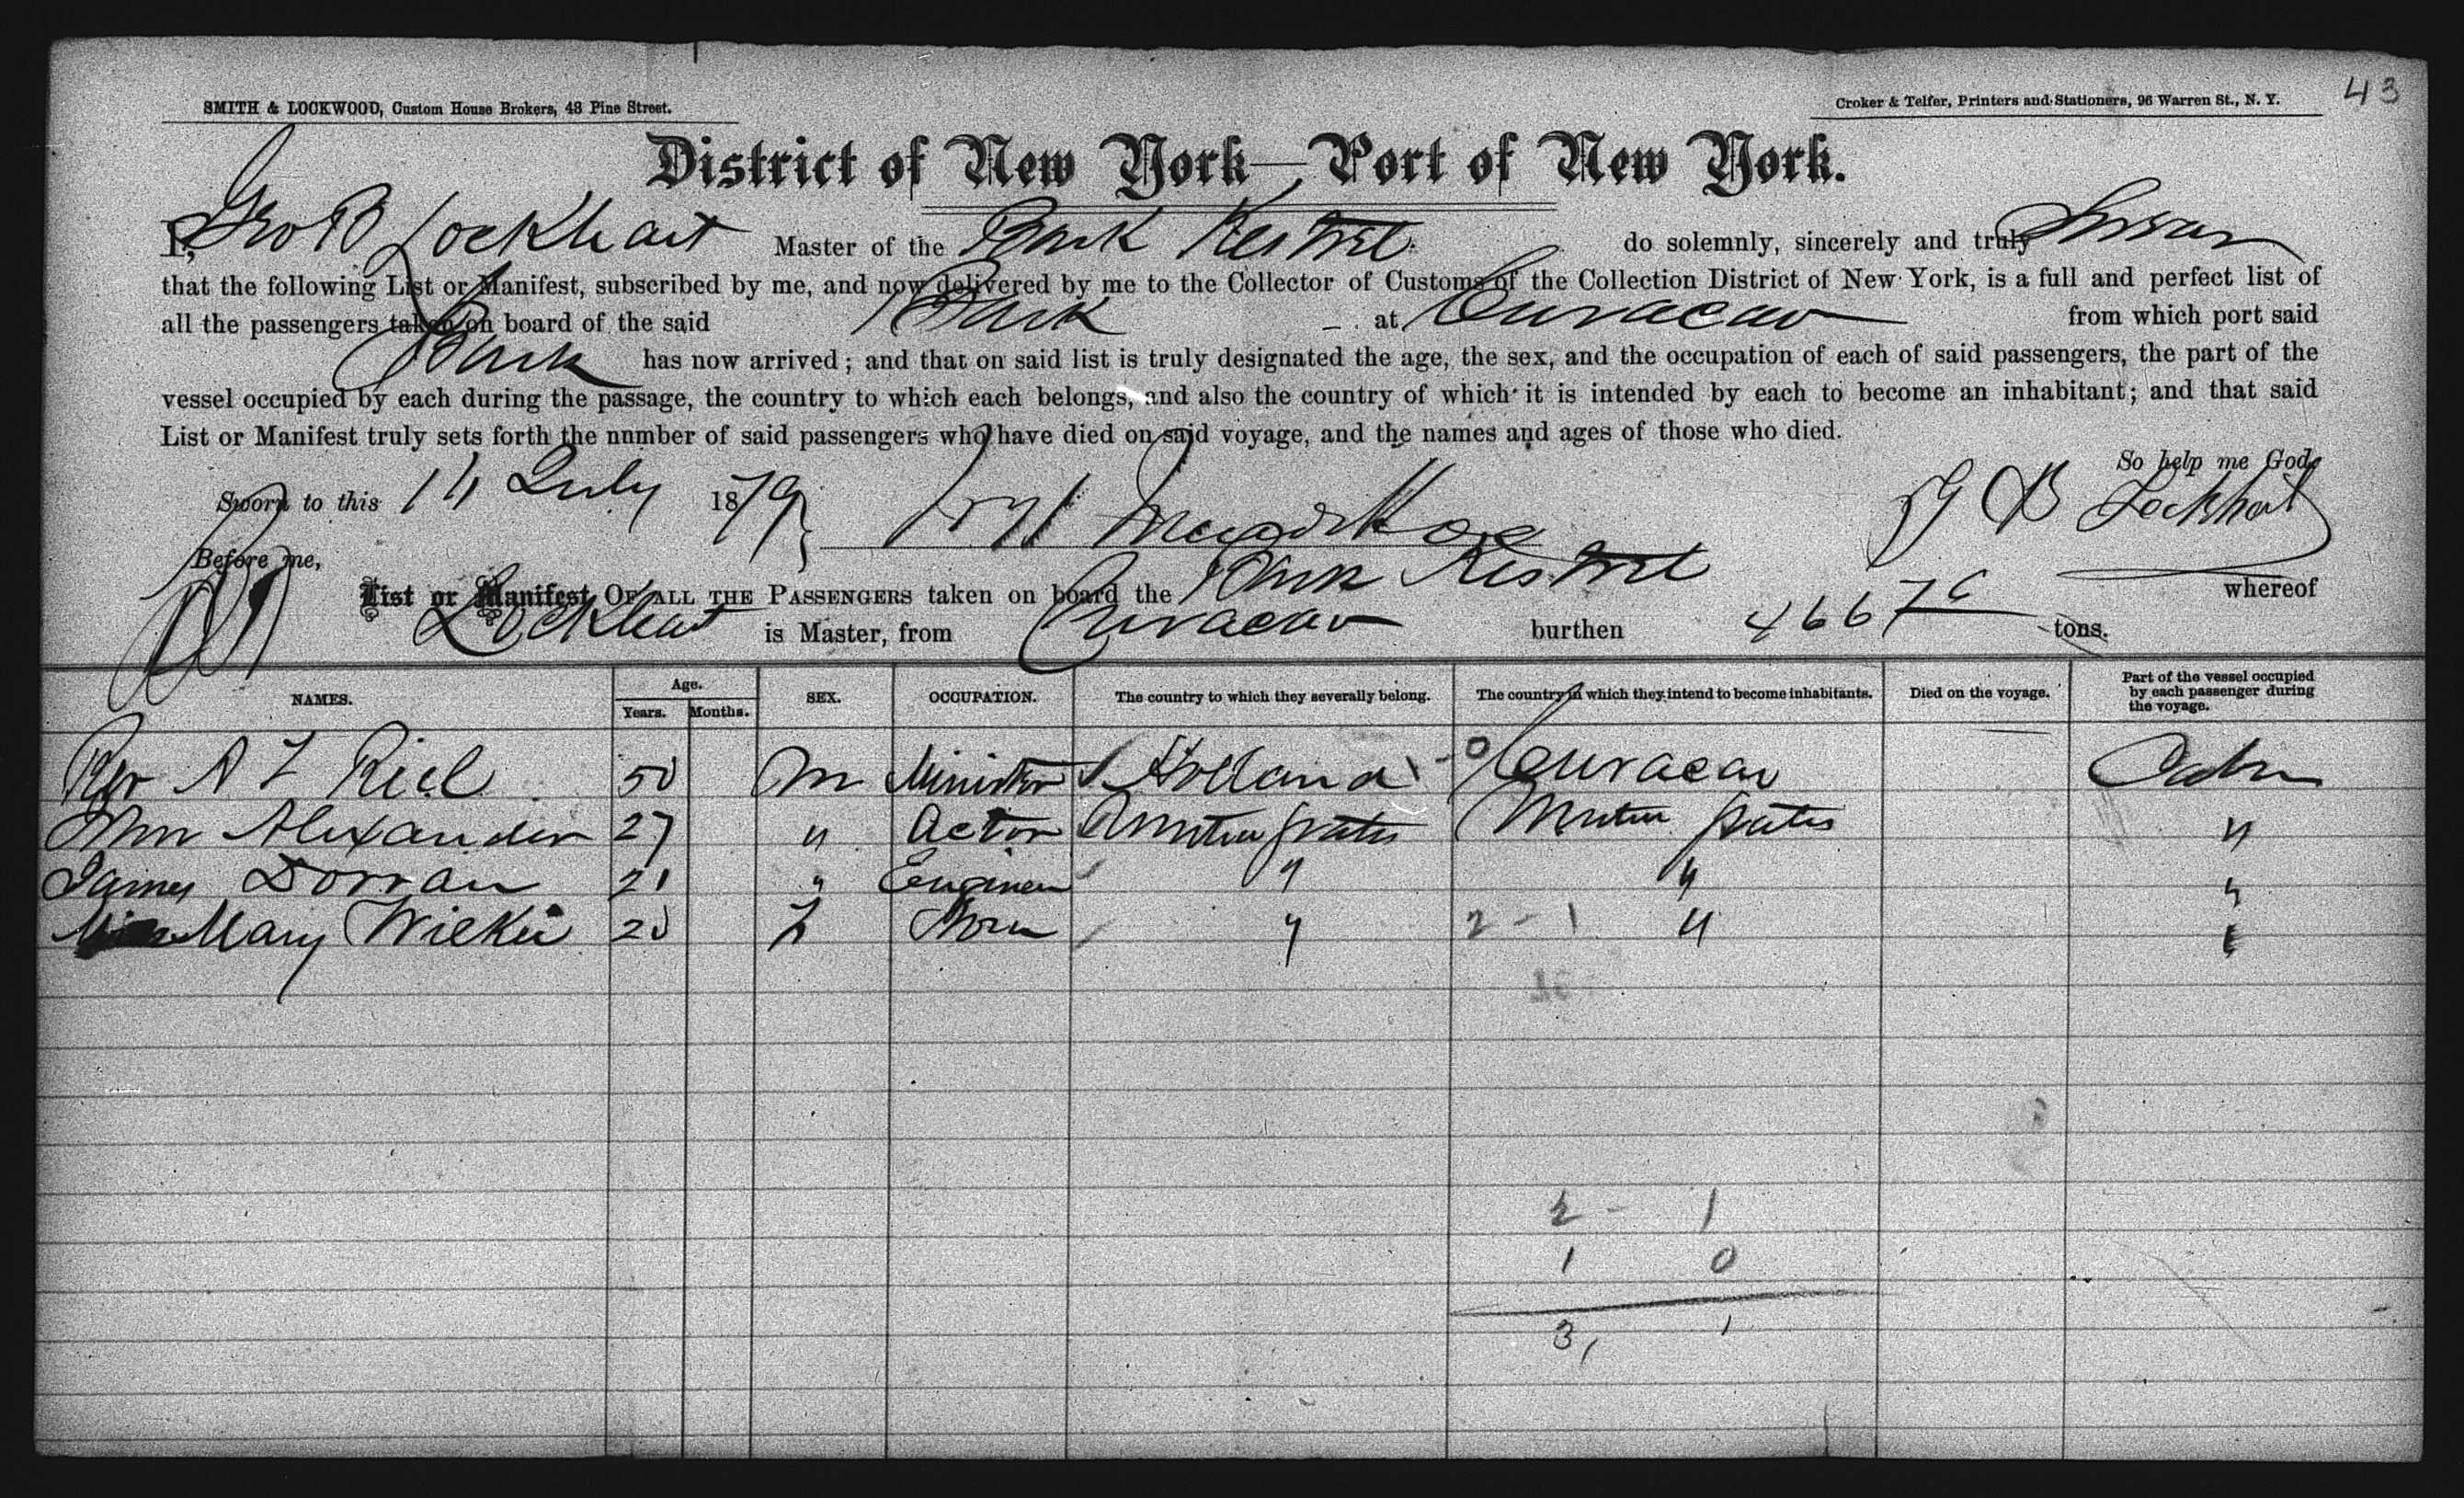 43
SMITH & LOCKWOOD, Custom House Brokers, 48 Pine Street.
Croker & Telfer, Printers and Stationers, 96 Warren St., N. Y.
District of New York—Port of New York.
I, Geo B Lockhart Master of the Bark Kestrel do solemnly, sincerely and truly Swear
that the following List or Manifest, subscribed by me, and now delivered by me to the Collector of Customs of the Collection District of New York, is a full and perfect list of
all the passengers taken on board of the said Bark at Curacao from which port said
Bark has now arrived; and that on said list is truly designated the age, the sex, and the occupation of each of said passengers, the part of the
vessel occupied by each during the passage, the country to which each belongs, and also the country of which it is intended by each to become an inhabitant; and that said
List or Manifest truly sets forth the number of said passengers who have died on said voyage, and the names and ages of those who died.
So help me God.
Sworn to this 14 July 1879 G B Lockhart
Before me,
List or Manifest OF ALL THE PASSENGERS taken on board the Bark Kestrel whereof
Lockhart is Master, from Curacao burthen 466 tons.
NAMES. Age. Years. Months. SEX. OCCUPATION. The country to which they severally belong. The country in which they intend to become inhabitants. Died on the voyage. Part of the vessel occupied by each passenger during the voyage.
Rev A Riel 50 M Minister Holland 0 Curacao Cabin
Wm Alexander 27 " Actor United States United States "
James Dorran 21 " Engineer " " "
Mary Wilkie 20 F None " 2 - 1 " "
2 - 1
1 0
3, 1